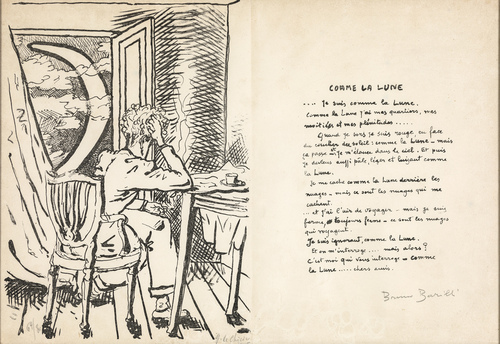 COMME LA LUNE
.... Je suis comme la Lune.
Comme la Lune j'ai mes quartiers, mes
moitiés et mes plénitudes .....
Quand je sors je suis rouge, en face
du coucher du soleil: comme la Lune - mais
ça passe et je m'élance dans le ciel. Et puis
je deviens aussi pâle, léger et luisant comme
la Lune.
Je me cache comme la Lune derrière les
nuages - mais ce sont les nuages qui me
cachent.
... et j'ai l'air de voyager - mais je suis
ferme, toujours ferme - ce sont les nuages
qui voyagent.
Je suis ignorant, comme la Lune.
Et on m'interroge .... mais alors?
C'est moi qui vous interroge - comme
la Lune .... chers amis.
Bruno Barilli
G. de Chirico